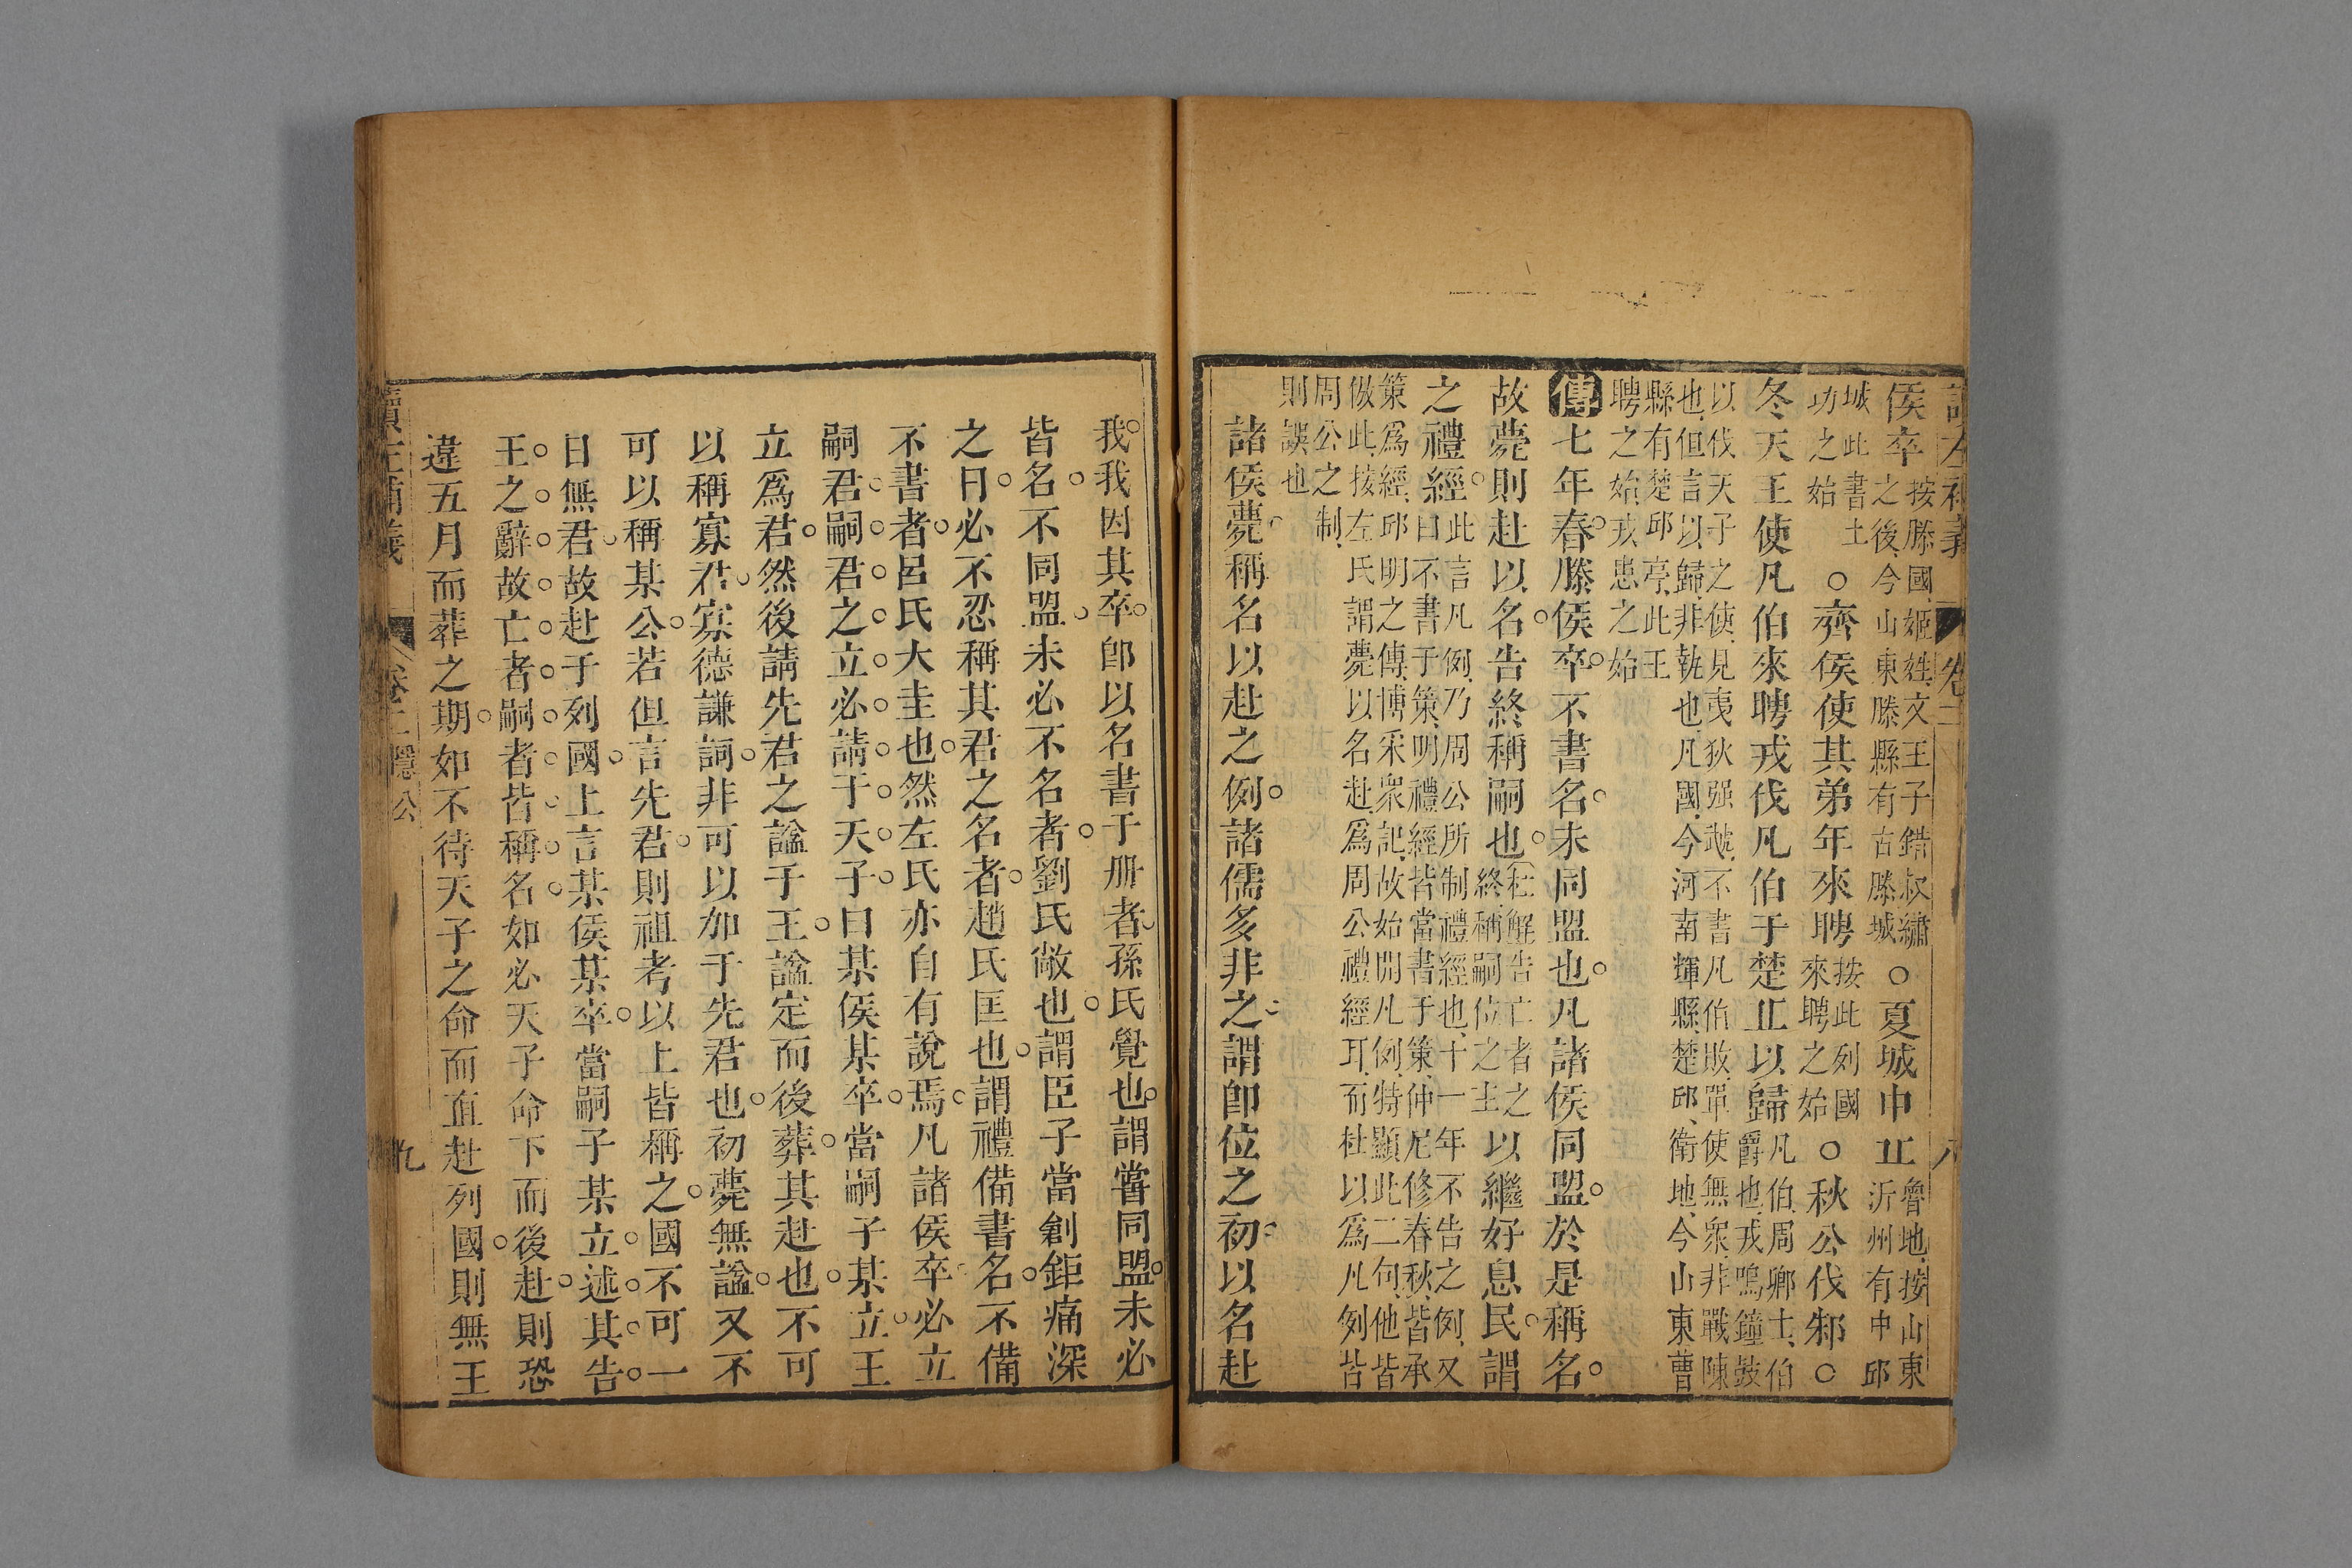 讀左補義 卷二 八
侯卒按滕國姬姓文王子錯叔繡之後今山東滕縣有古滕城○夏城中丘魯地按山東沂州有中邱
城此書土功之始○齊侯使其弟年來聘按此列國來聘之始○秋公伐邾○
冬天王使凡伯來聘戎伐凡伯于楚丘以歸凡伯周卿士伯爵也戎鳴鐘鼓
以伐天子之使見夷狄强虣不書凡伯敗單使無衆非戰陳也但言以歸非執也凡國今河南輝縣楚邱衛地今山東曹
縣有楚邱亭此王聘之始戎患之始
傳七年春滕侯卒不書名未同盟也凡諸侯同盟於是稱名
故薨則赴以名告終稱嗣也杜解告亡者之終稱嗣位之主以繼好息民謂
之禮經此言凡例乃周公所制禮經也十一年不告之例又曰不書于策明禮經皆當書于策仲尼修春秋皆承
策爲經邱明之傳博采衆記故始開凡例特顯此二句他皆倣此按左氏謂薨以名赴爲周公禮經耳而杜以爲凡例皆
周公之制則誤也
諸侯薨稱名以赴之例諸儒多非之謂卽位之初以名赴
我我因其卒卽以名書于册者孫氏覺也謂嘗同盟未必
皆名不同盟未必不名者劉氏敞也謂臣子當創鉅痛深
之日必不忍稱其君之名者趙氏匡也謂禮備書名不備
不書者呂氏大圭也然左氏亦自有說焉凡諸侯卒必立
嗣君嗣君之立必請于天子曰某侯某卒當嗣子某立王
立爲君然後請先君之諡于王諡定而後葬其赴也不可
以稱寡君寡德謙詞非可以加于先君也初薨無諡又不
可以稱某公若但言先君則祖考以上皆稱之國不可一
日無君故赴于列國上言某侯某卒當嗣子某立述其告
王之辭故亡者嗣者皆稱名如必天子命下而後赴則恐
違五月而葬之期如不待天子之命而直赴列國則無王
讀左補義 卷二隱公 九